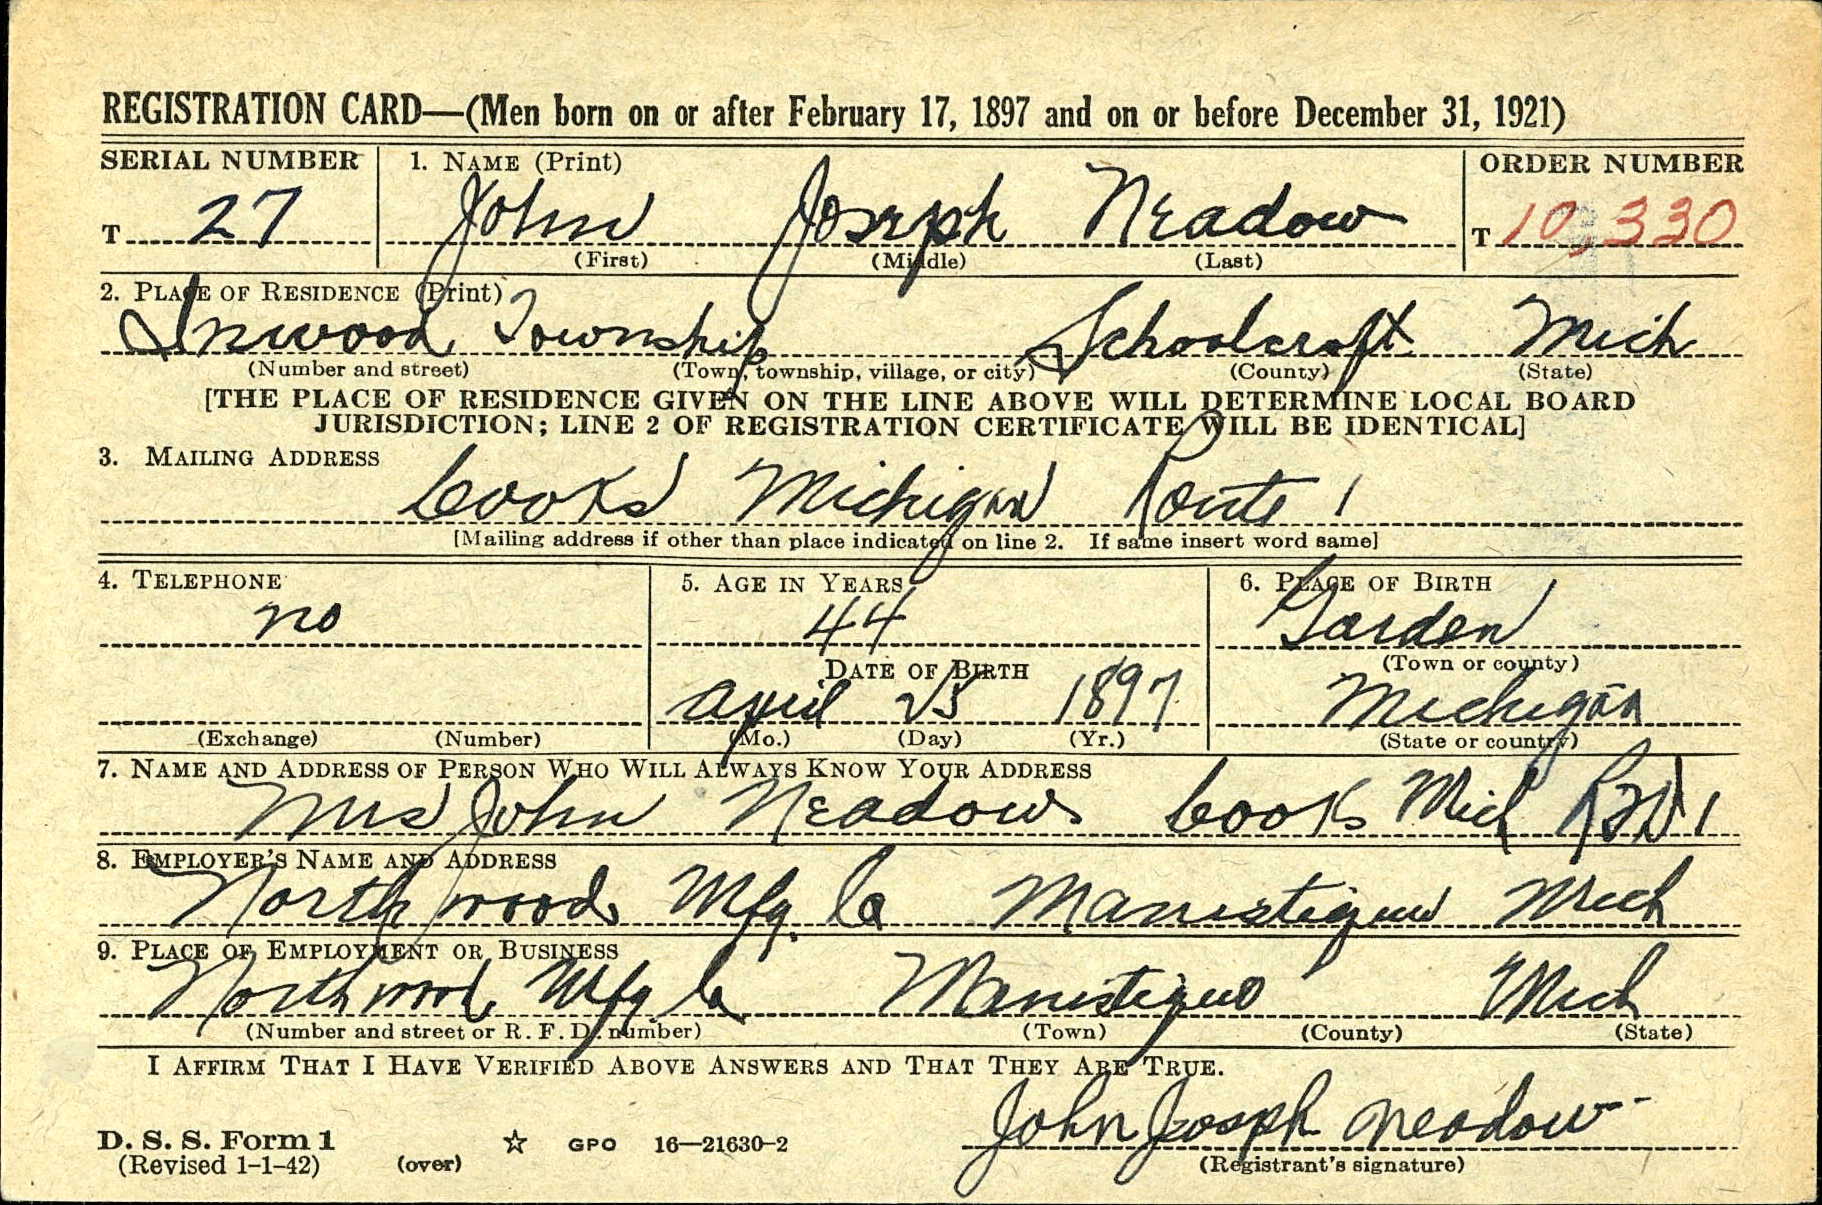 REGISTRATION CARD—(Men born on or after February 17, 1897 and on or before December 31, 1921)
SERIAL NUMBER 1. NAME (Print) ORDER NUMBER
T 27 John Joseph Neadow T 10,330
(First) (Middle) (Last)
2. PLACE OF RESIDENCE (Print)
Inwood Township Schoolcraft Mich
(Number and street) (Town, township, village, or city) (County) (State)
[THE PLACE OF RESIDENCE GIVEN ON THE LINE ABOVE WILL DETERMINE LOCAL BOARD
JURISDICTION; LINE 2 OF REGISTRATION CERTIFICATE WILL BE IDENTICAL]
3. MAILING ADDRESS
Cooks Michigan Route 1
[Mailing address if other than place indicated on line 2. If same insert word same]
4. TELEPHONE 5. AGE IN YEARS 6. PLACE OF BIRTH
no 44 Garden
DATE OF BIRTH (Town or county)
April 25 1897 Michigan
(Exchange) (Number) (Mo.) (Day) (Yr.) (State or country)
7. NAME AND ADDRESS OF PERSON WHO WILL ALWAYS KNOW YOUR ADDRESS
Mrs John Neadow Cooks Mich RFD 1
8. EMPLOYER'S NAME AND ADDRESS
Northwoods Mfg. Co Manistique Mich
9. PLACE OF EMPLOYMENT OR BUSINESS
Northwood Mfg Co Manistique Mich
(Number and street or R. F. D. number) (Town) (County) (State)
I AFFIRM THAT I HAVE VERIFIED ABOVE ANSWERS AND THAT THEY ARE TRUE.
John Joseph Neadow
D. S. S. Form 1 ☆ GPO 16—21630-2
(Revised 1-1-42) (over) (Registrant's signature)